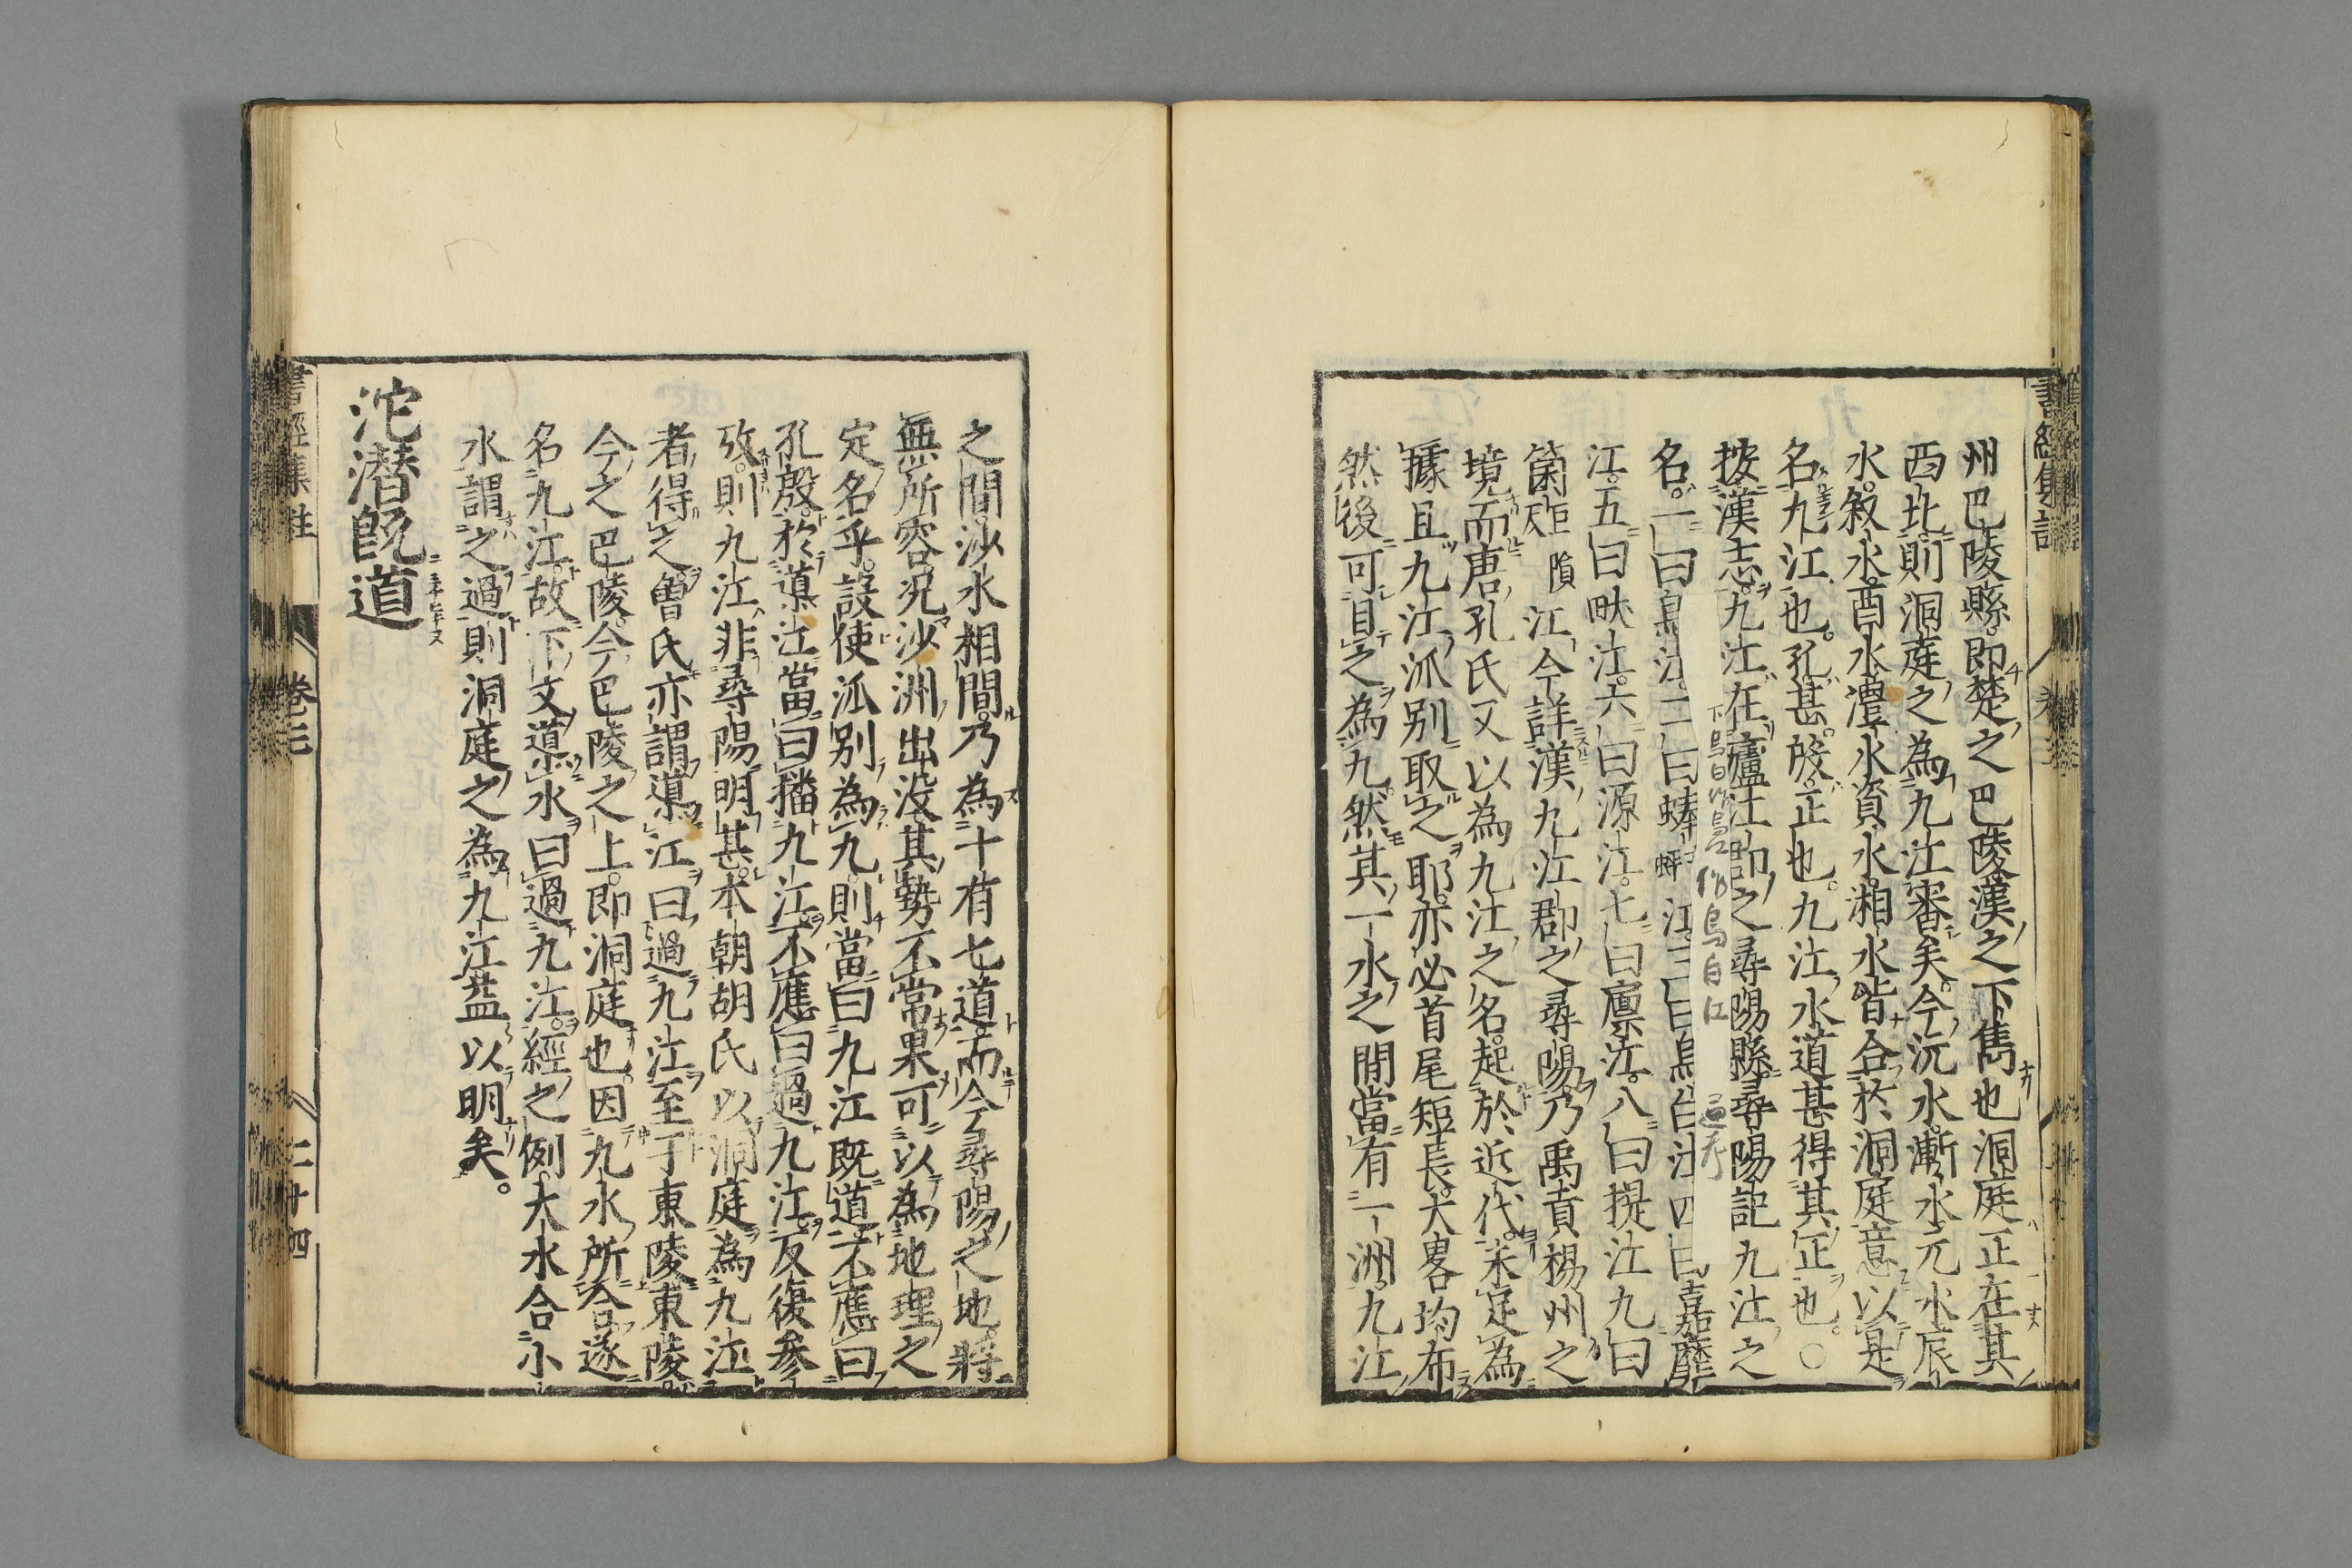 州巴陵縣即楚之巴陵漢之下雋也洞庭正在其
西北則洞庭之為九江審矣今沅水漸水元水辰
水叙水酉水澧水資水湘水皆合於洞庭意以是
名九江也孔甚殷正也九江水道甚得其正也○
按漢志九江在廬江郡之尋陽縣尋陽記九江之
名一曰烏江二曰蜯江三曰烏白江四曰嘉靡
江五曰畎江六曰源江七曰廩江八曰提江九曰
箘江今詳漢九江郡之尋陽乃禹貢楊州之
境而唐孔氏又以為九江之名起於近代未定為
據且九江派别取之耶亦必首尾短長大畧均布
然後可目之為九然其一水之間當有一洲九江
之間沙水相間乃為十有七道而今尋陽之地將
無所容况沙洲出没其勢不常果可以為地理之
定名乎設使派别為九則當曰九江既道不應曰
孔殷於導江當曰播九江不應曰過九江反復參
攷則九江非尋陽明甚本朝胡氏以洞庭為九江
者得之曽氏亦謂導江曰過九江至于東陵東陵
今之巴陵今巴陵之上即洞庭也因九水所合遂
名九江故下文導水曰過九江經之例大水合小
水謂之過則洞庭之為九江葢以明矣。
沱潜旣道
書經集註
卷三
二十四